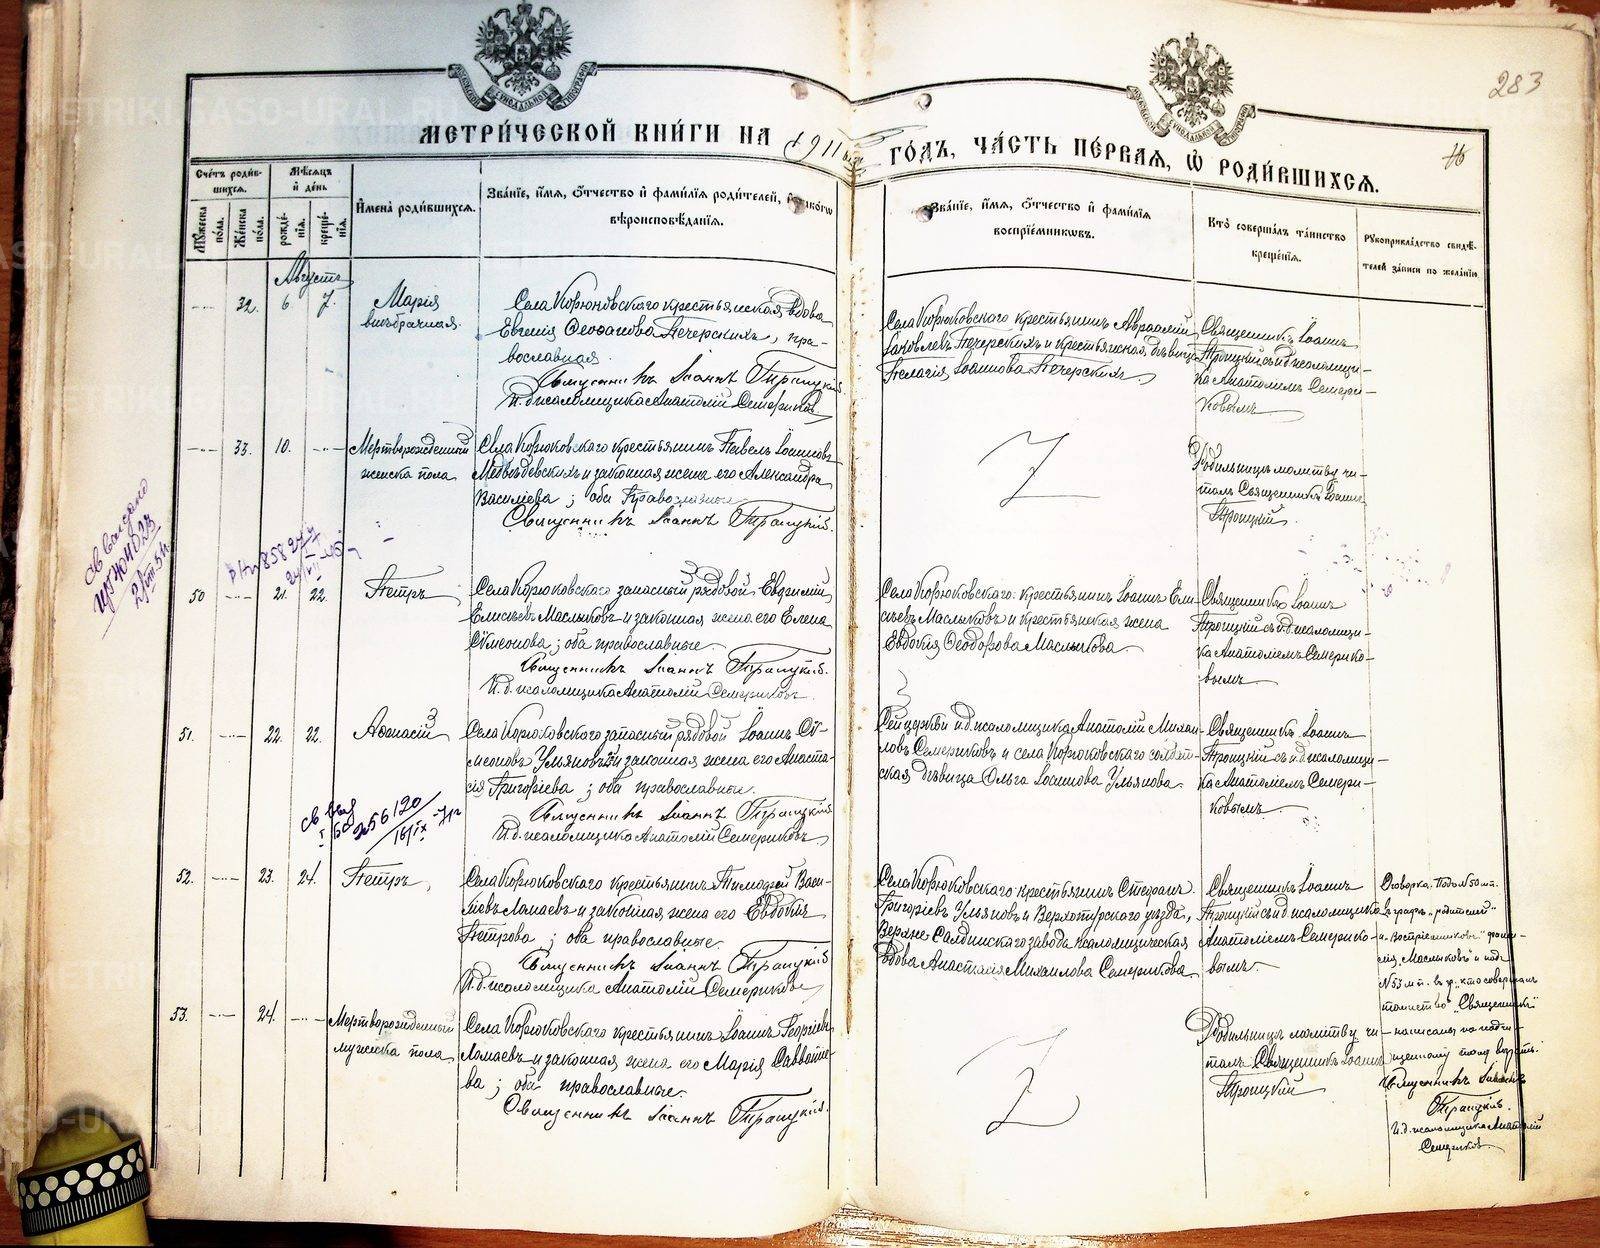 283
МЕТРИ́ЧЕСКОЙ КНИ́ГИ НА 1911 ГО́ДЪ, ЧА́СТЬ ПЕ́РВАЯ, Ѿ РОДИ́ВШИХСЯ.
Сче́тъ роди́в-
шихся.
Мѣ́сяцъ
и де́нь
Мꙋ́жеска по́ла.
Же́нска по́ла.
рожде́-
нія.
креще́-
нія.
Имена̀ роди́вшихся.
Зва́ніе, и́мя, ѻ҆́тчество и фами́лія роди́телей, и како́гѡ
вѣроисповѣ́данія.
Зва́ніе, и́мя, ѻ҆́тчество и фами́лія
воспріе́мникѡвъ.
Кто̀ соверша́лъ та́инство
креще́нія.
Рꙋкоприкла́дство свидѣ́-
телей за́писи по жела́нію
Августъ
32. 6. 7.
Марія
внѣбрачная.
Села Корюковскаго крестьянская вдова
Евгенія Ѳеофанова Печерскихъ, пра-
вославная.
Священникъ Іоаннъ Троицкій
И.д. псаломщика Анатолій Семериковъ
Села Корюковскаго крестьянинъ Авраамій
Іаковлевъ Печерскихъ и крестьянская дѣвица
Пелагія Іоаннова Печерскихъ.
Священникъ Іоаннъ
Троицкій съ и.д. псаломщи-
ка Анатоліемъ Семери-
ковымъ
33. 10.
Мертворожденный
женска пола
Села Корюковскаго крестьянинъ Павелъ Іоанновъ
Медвѣдевскихъ и законная жена его Александра
Васильева; оба православные
Священникъ Іоаннъ Троицкій.
Родильницѣ молитву чи-
талъ Священникъ Іоаннъ
Троицкій.
50 21. 22.
Петръ
Села Корюковскаго запасный рядовой Евфимій
Елисѣевъ Маслыковъ и законная жена его Елена
Сѵмеонова; оба православные.
Священникъ Іоаннъ Троицкій.
И.д. псаломщика Анатолій Семериковъ.
Села Корюковскаго крестьянинъ Іоаннъ Ели-
сѣевъ Маслыковъ и крестьянская жена
Евдокія Ѳеодорова Маслыкова
Священникъ Іоаннъ
Троицкій съ и.д. псаломщи-
ка Анатоліемъ Семерико-
вымъ
51. 22. 22.
Аѳанасій
Села Корюковскаго запасный рядовой Іоаннъ Сѵ-
меоновъ Ульяновъ и законная жена его Анаста-
сія Григоріева; оба православные.
Священникъ Іоаннъ Троицкій
И.д. псаломщика Анатолій Семериковъ
Сей церкви и.д. псаломщика Анатолій Михаи-
ловъ Семериковъ и села Корюковскаго солдат-
ская дѣвица Ольга Іоаннова Ульянова.
Священникъ Іоаннъ
Троицкій съ и.д. псаломщи-
ка Анатоліемъ Семери-
ковымъ
52. 23. 24.
Петръ
Села Корюковскаго крестьянинъ Тимоѳей Васи-
льевъ Ламаевъ и законная жена его Евдокія
Петрова; оба православные.
Священникъ Іоаннъ Троицкій
И.д. псаломщика Анатолій Семериковъ
Села Корюковскаго крестьянинъ Стефанъ
Григоріевъ Ульяновъ и Верхотурского уѣзда,
Верхне-Салдинскаго завода псаломщическая
вдова Анастасія Михаилова Семерикова
Священникъ Іоаннъ
Троицкій съ и.д. псаломщика
Анатоліемъ Семерико-
вымъ.
53. 24.
Мертворожденный
мужска пола
Села Корюковскаго крестьянинъ Іоаннъ Георгіевъ
Ламаевъ и законная жена его Марія Савватіе-
ва; оба православные.
Священникъ Іоаннъ Троицкій.
Родильницѣ молитву чи-
талъ Священникъ Іоаннъ
Троицкій
Оговорка. Подъ №50 м.п.
въ графѣ „родителей"
и „Воспріемниковъ" фами-
лія „Маслыковъ" и подъ
№53 м.п. въ гр. „кто совершалъ
таинство" „Священникъ"
написаны по подчи-
щенному
Священникъ Іоаннъ
Троицкій.
И.д. псаломщика Анатолій
Семериковъ